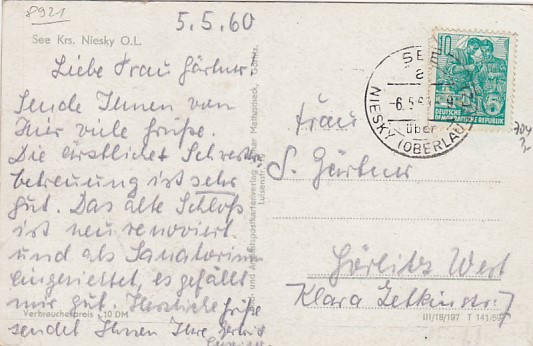 8921
5.5.60
See Krs. Niesky O.L.
Liebe Frau Gärtner.
Sende Ihnen von
hier viele Grüße.
Die ärztliche
betreuung ist sehr
gut. Das alte Schloß
ist neu renoviert
und als Sanatorium
eingerichtet, es gefällt
mir gut. Herzliche Grüße
sendet Ihnen Ihre
Verbraucherpreis -,10 DM
10
5
DEUTSCHE
DEMOKRATISCHE REPUBLIK
SEE
über
NIESKY (OBERLAU
Frau
S. Gärtner
Görlitz West
Klara Zetkinstr. 7
III/18/197 T 141/59